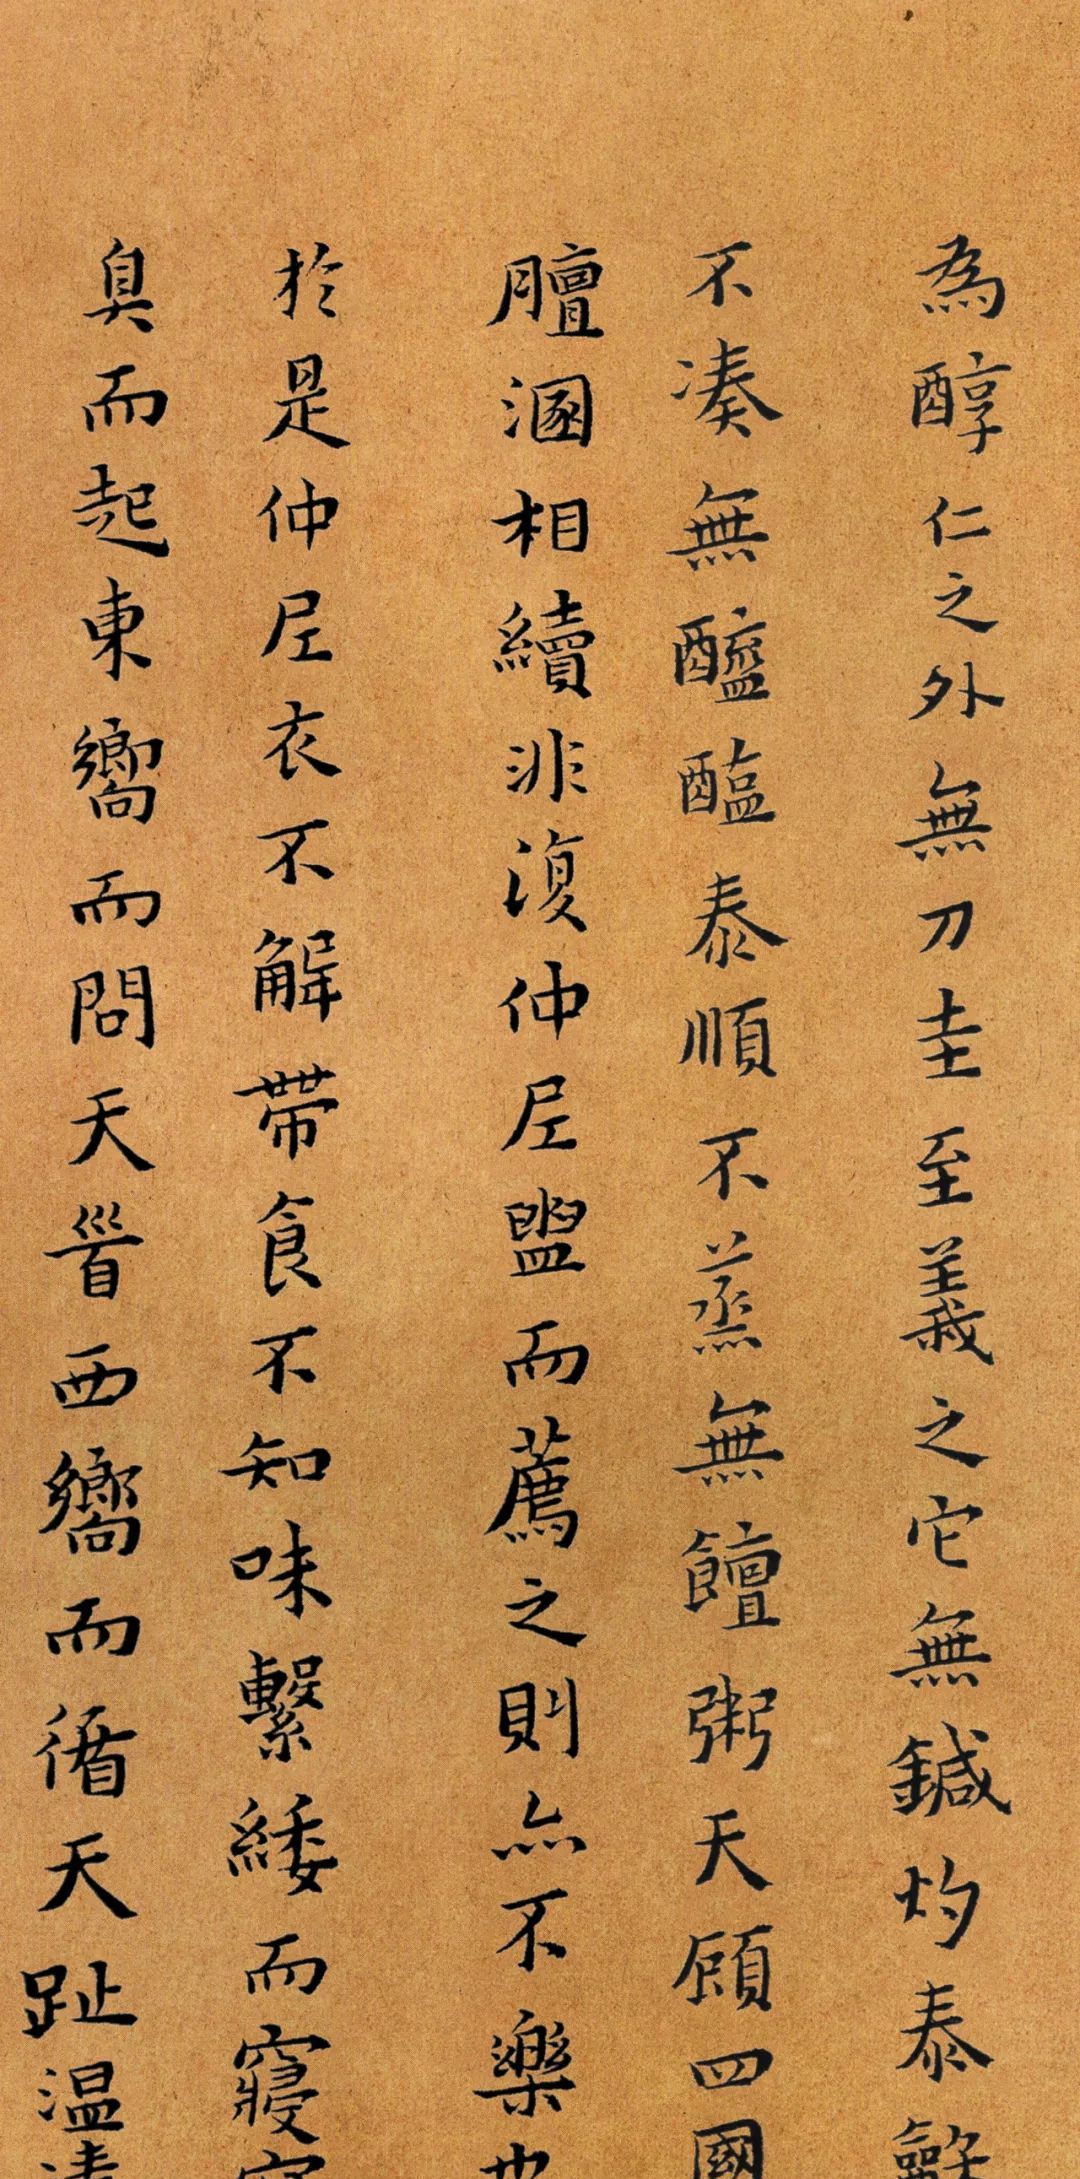 為醇仁之外無刀圭至義之它無鍼灼泰
不湊無醯醢泰順不蒸無饘粥天顧四國
膻溷相續非復仲尼盥而薦之則亦不樂也
於是仲尼衣不解帶食不知味繫緌而寢
臭而起東嚮而問天晉西嚮而循天趾温清